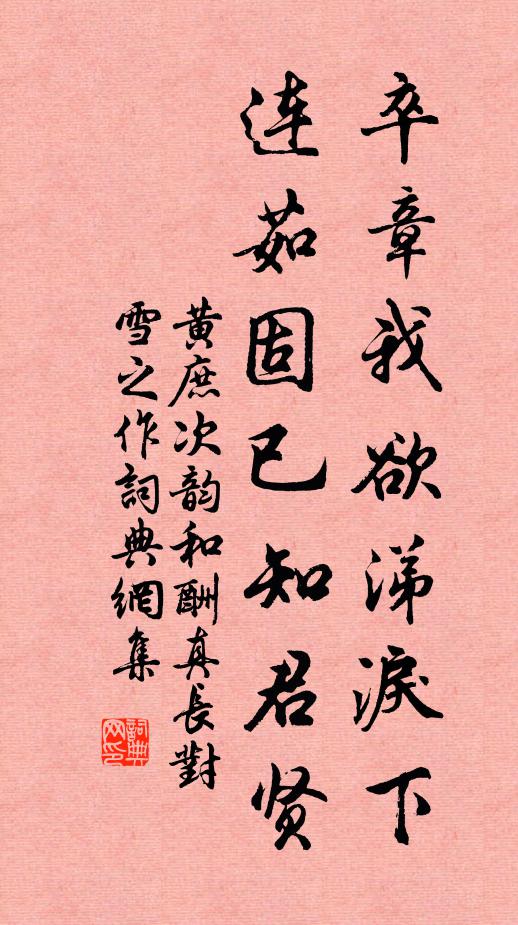 卒章我欲涕淚下
連茹固已知君贤
黃庶次韵和酬真長對
雪之作詞典網集
詞典
网印